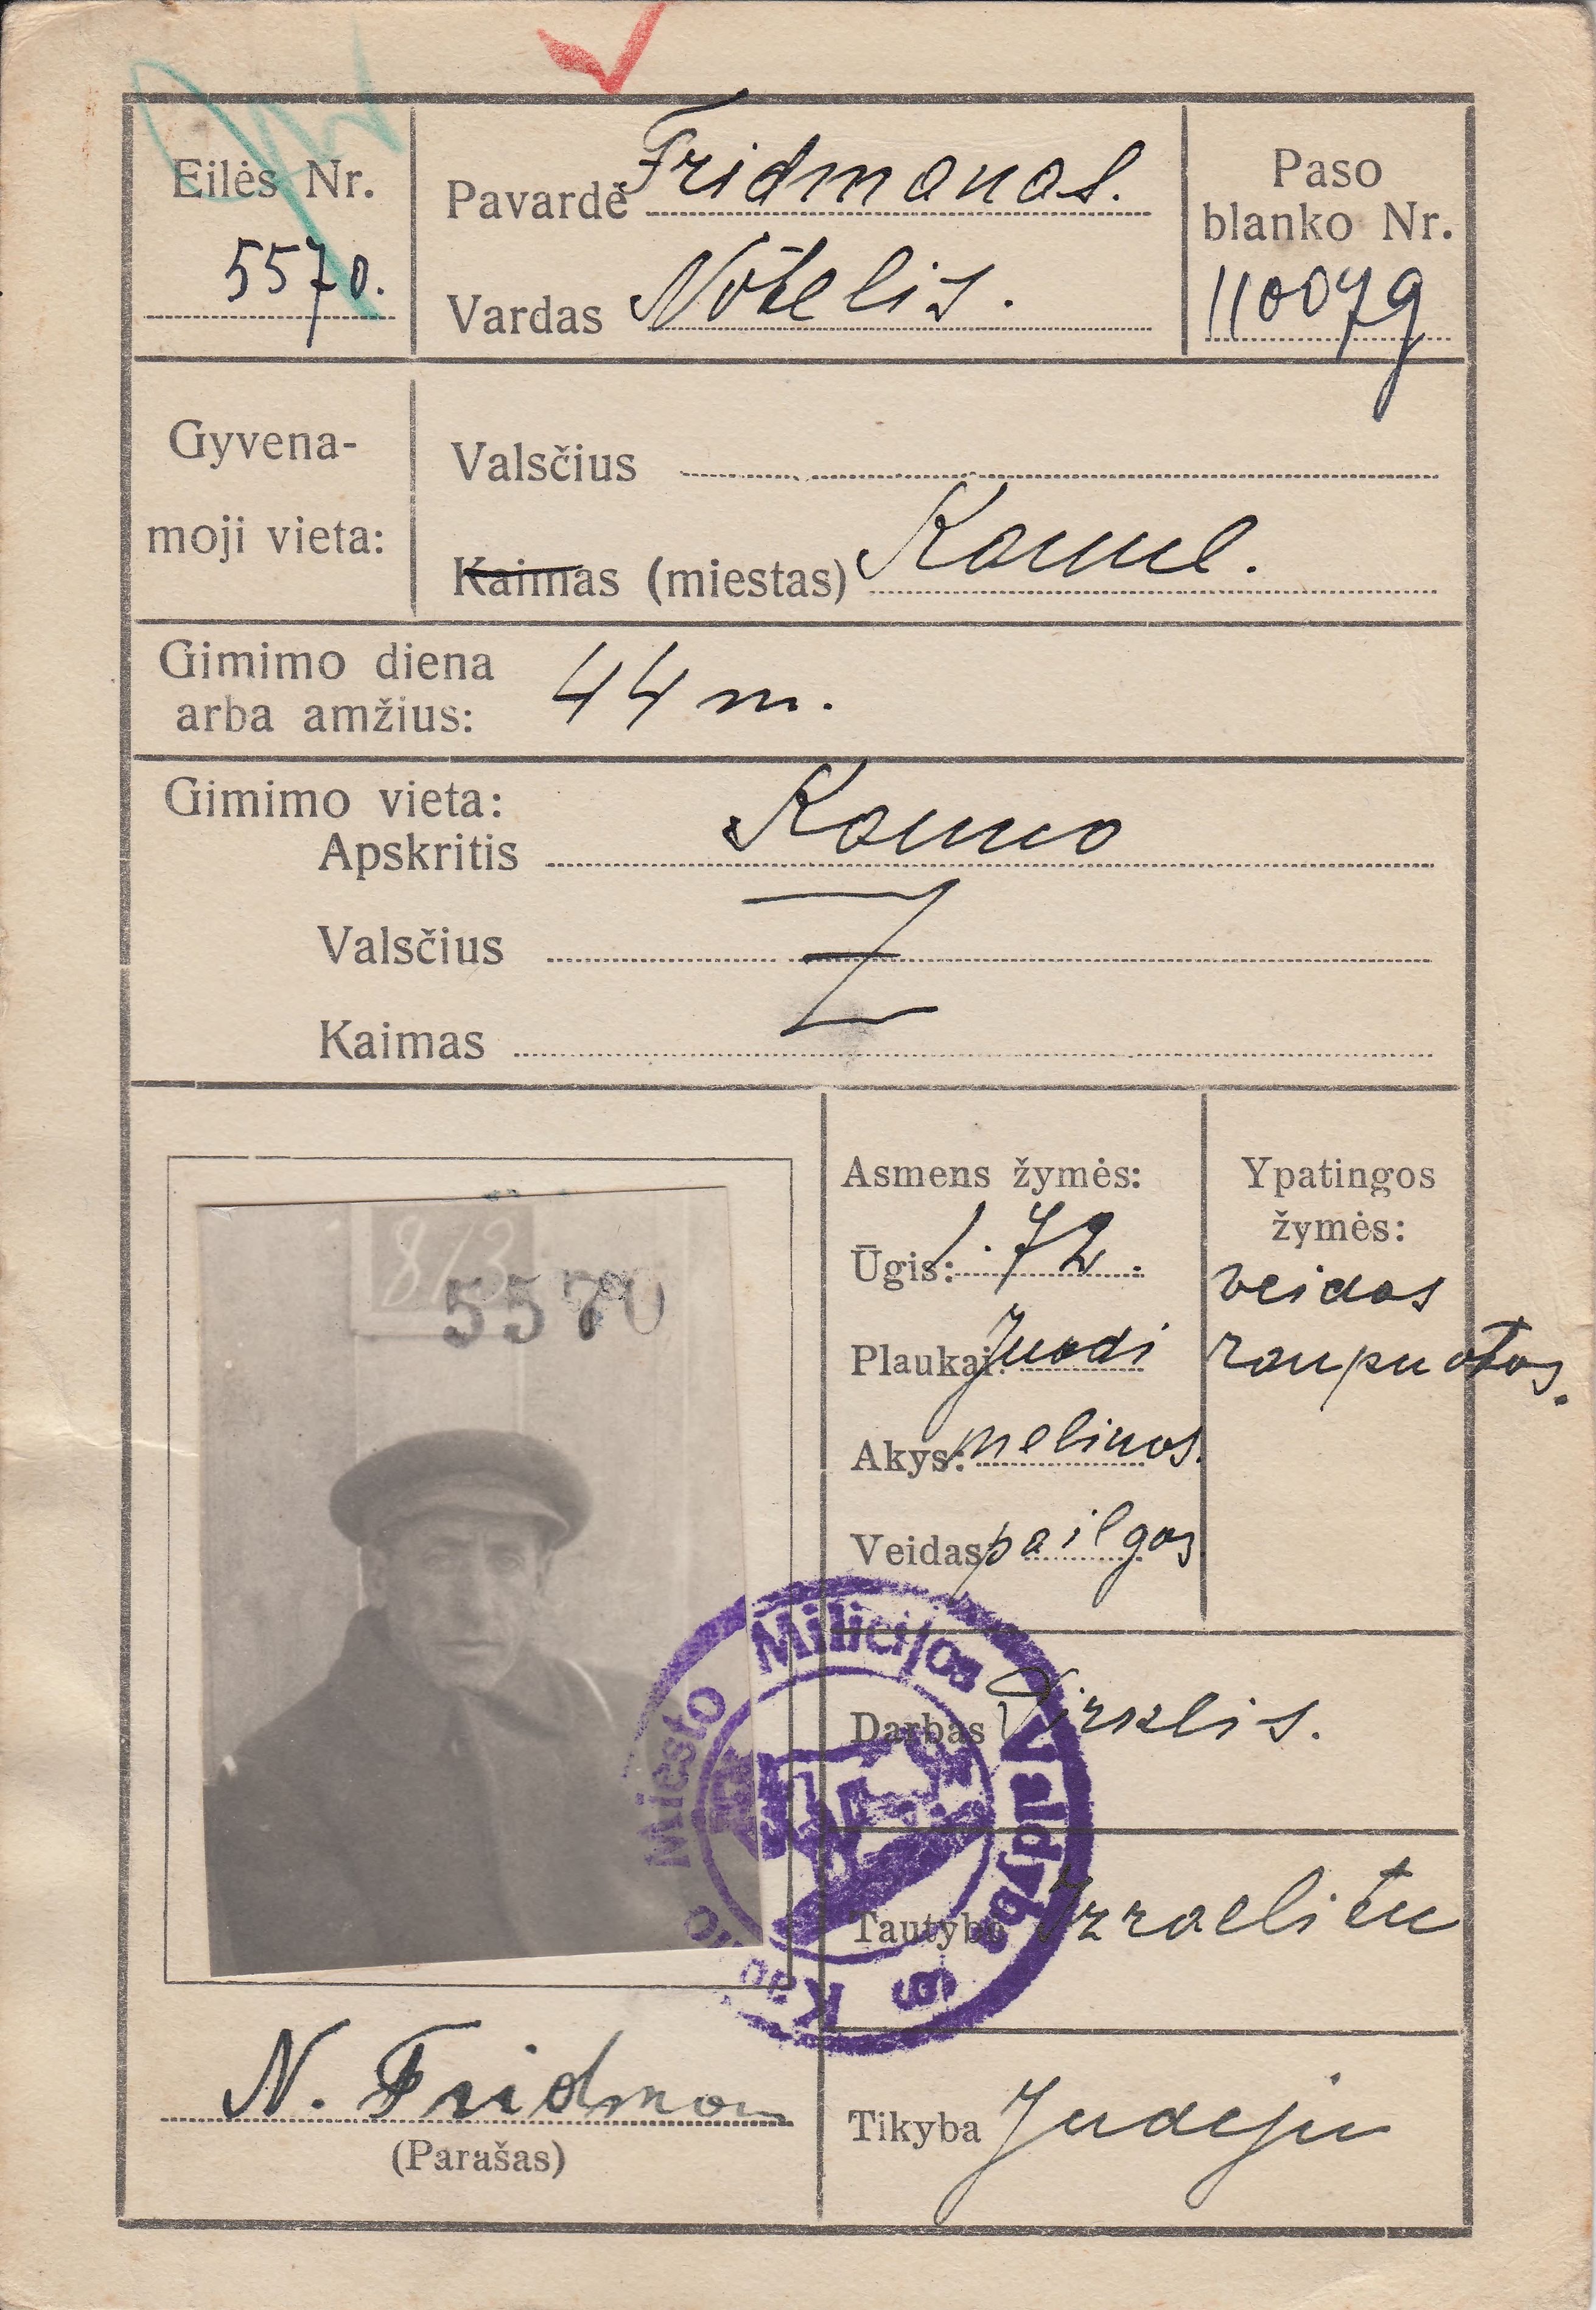 Eilės Nr.
5570.
Pavardė Fridmanas.
Vardas Notelis.
Paso
blanko Nr.
110079
Gyvena-
moji vieta:
Valsčius
Kaimas (miestas) Kaune.
Gimimo diena
arba amžius:
44 m.
Gimimo vieta:
Apskritis Kauno
Valsčius
Kaimas
813
5570
Asmens žymės:
Ūgis: 1.72.
Plaukai: Juodi
Akys: melinos.
Veidas pailgas
Ypatingos
žymės:
veidas
raupuotas.
Kauno Miesto Milicijos Valdyba
Darbas Pirklis.
Tautybė Izraelitu
Tikyba Judėju
N. Fridman
(Parašas)